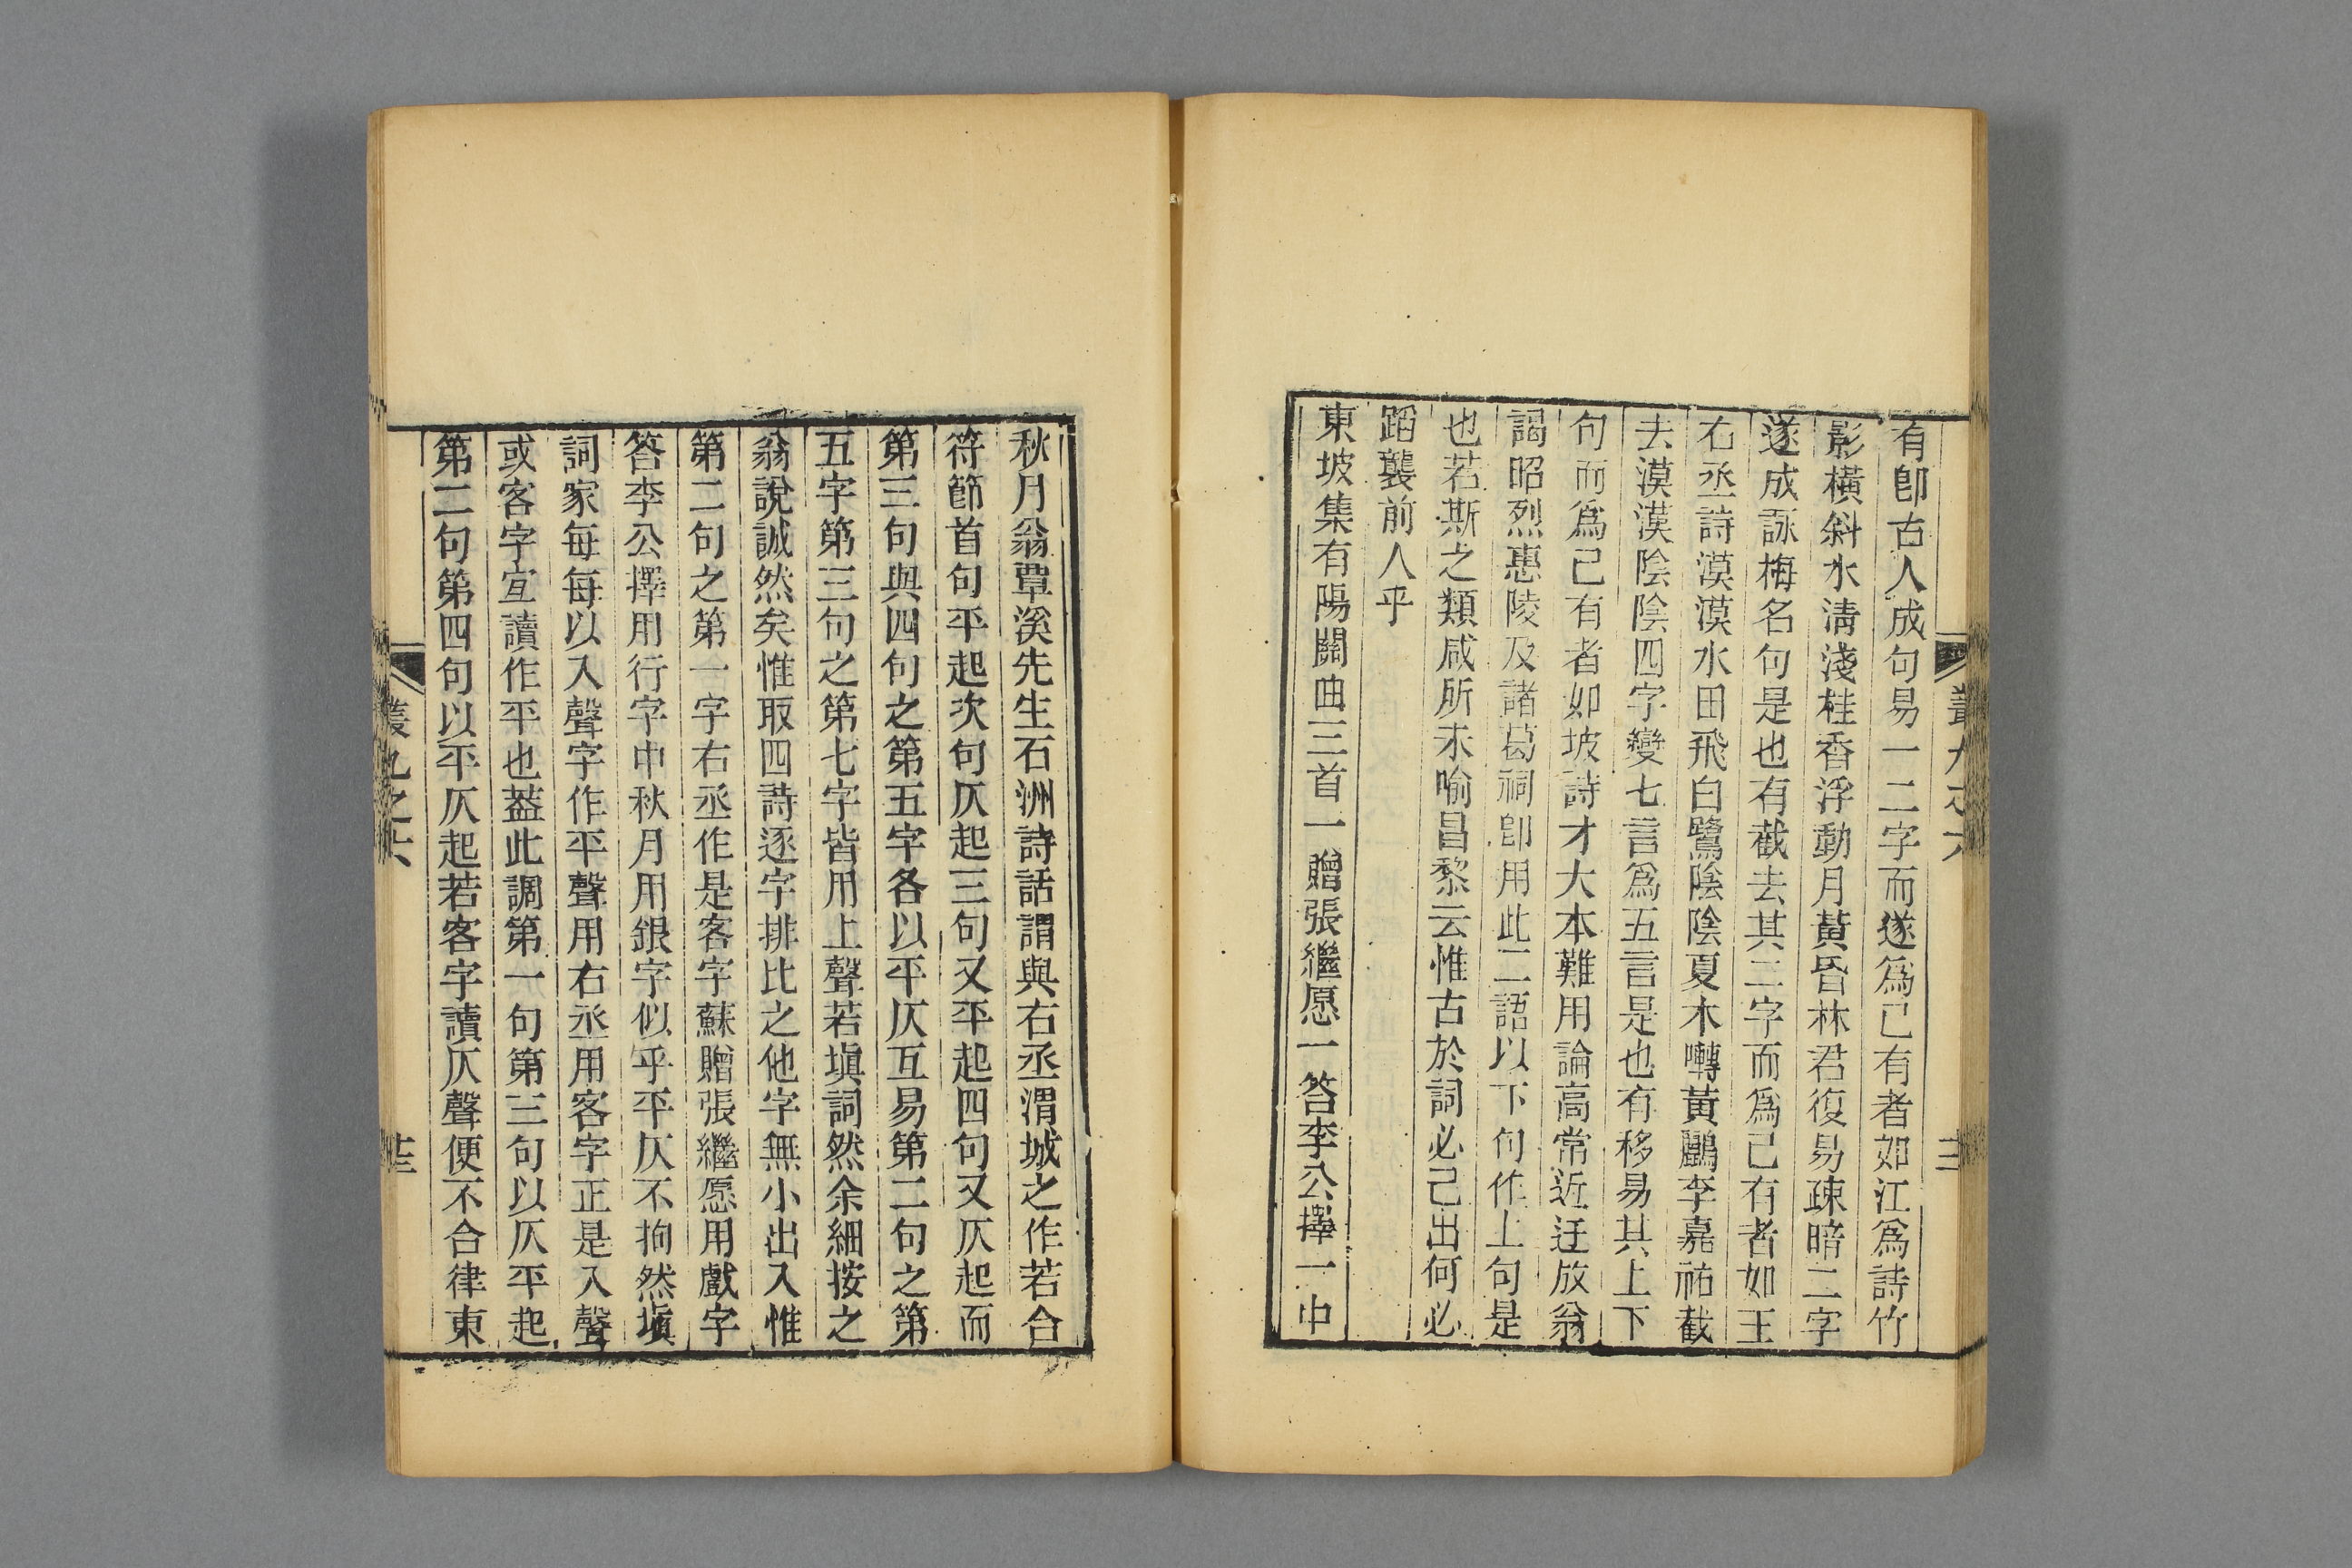 有卽古人成句易一二字而遂爲己有者如江爲詩竹
影橫斜水淸淺桂香浮動月黃昏林君復易疎暗二字
遂成詠梅名句是也有截去其二字而爲己有者如王
右丞詩漠漠水田飛白鷺陰陰夏木囀黃鸝李嘉祐截
去漠漠陰陰四字變七言爲五言是也有移易其上下
句而爲己有者如坡詩才大本難用論高常近迂放翁
謁昭烈惠陵及諸葛祠卽用此二語以下句作上句是
也若斯之類咸所未喻昌黎云惟古於詞必己出何必
蹈襲前人乎
東坡集有陽關曲三首一贈張繼愿一答李公擇一中
叢九之六
秋月翁覃溪先生石洲詩話謂與右丞渭城之作若合
符節首句平起次句仄起三句又平起四句又仄起而
第三句與四句之第五字各以平仄互易第二句之第
五字第三句之第七字皆用上聲若塡詞然余細按之
翁說誠然矣惟取四詩逐字排比之他字無小出入惟
第二句之第一字右丞作是客字蘇贈張繼愿用戲字
答李公擇用行字中秋月用銀字似乎平仄不拘然塡
詞家每每以入聲字作平聲用右丞用客字正是入聲
或客字宜讀作平也葢此調第一句第三句以仄平起
第二句第四句以平仄起若客字讀仄聲便不合律東
叢九之六